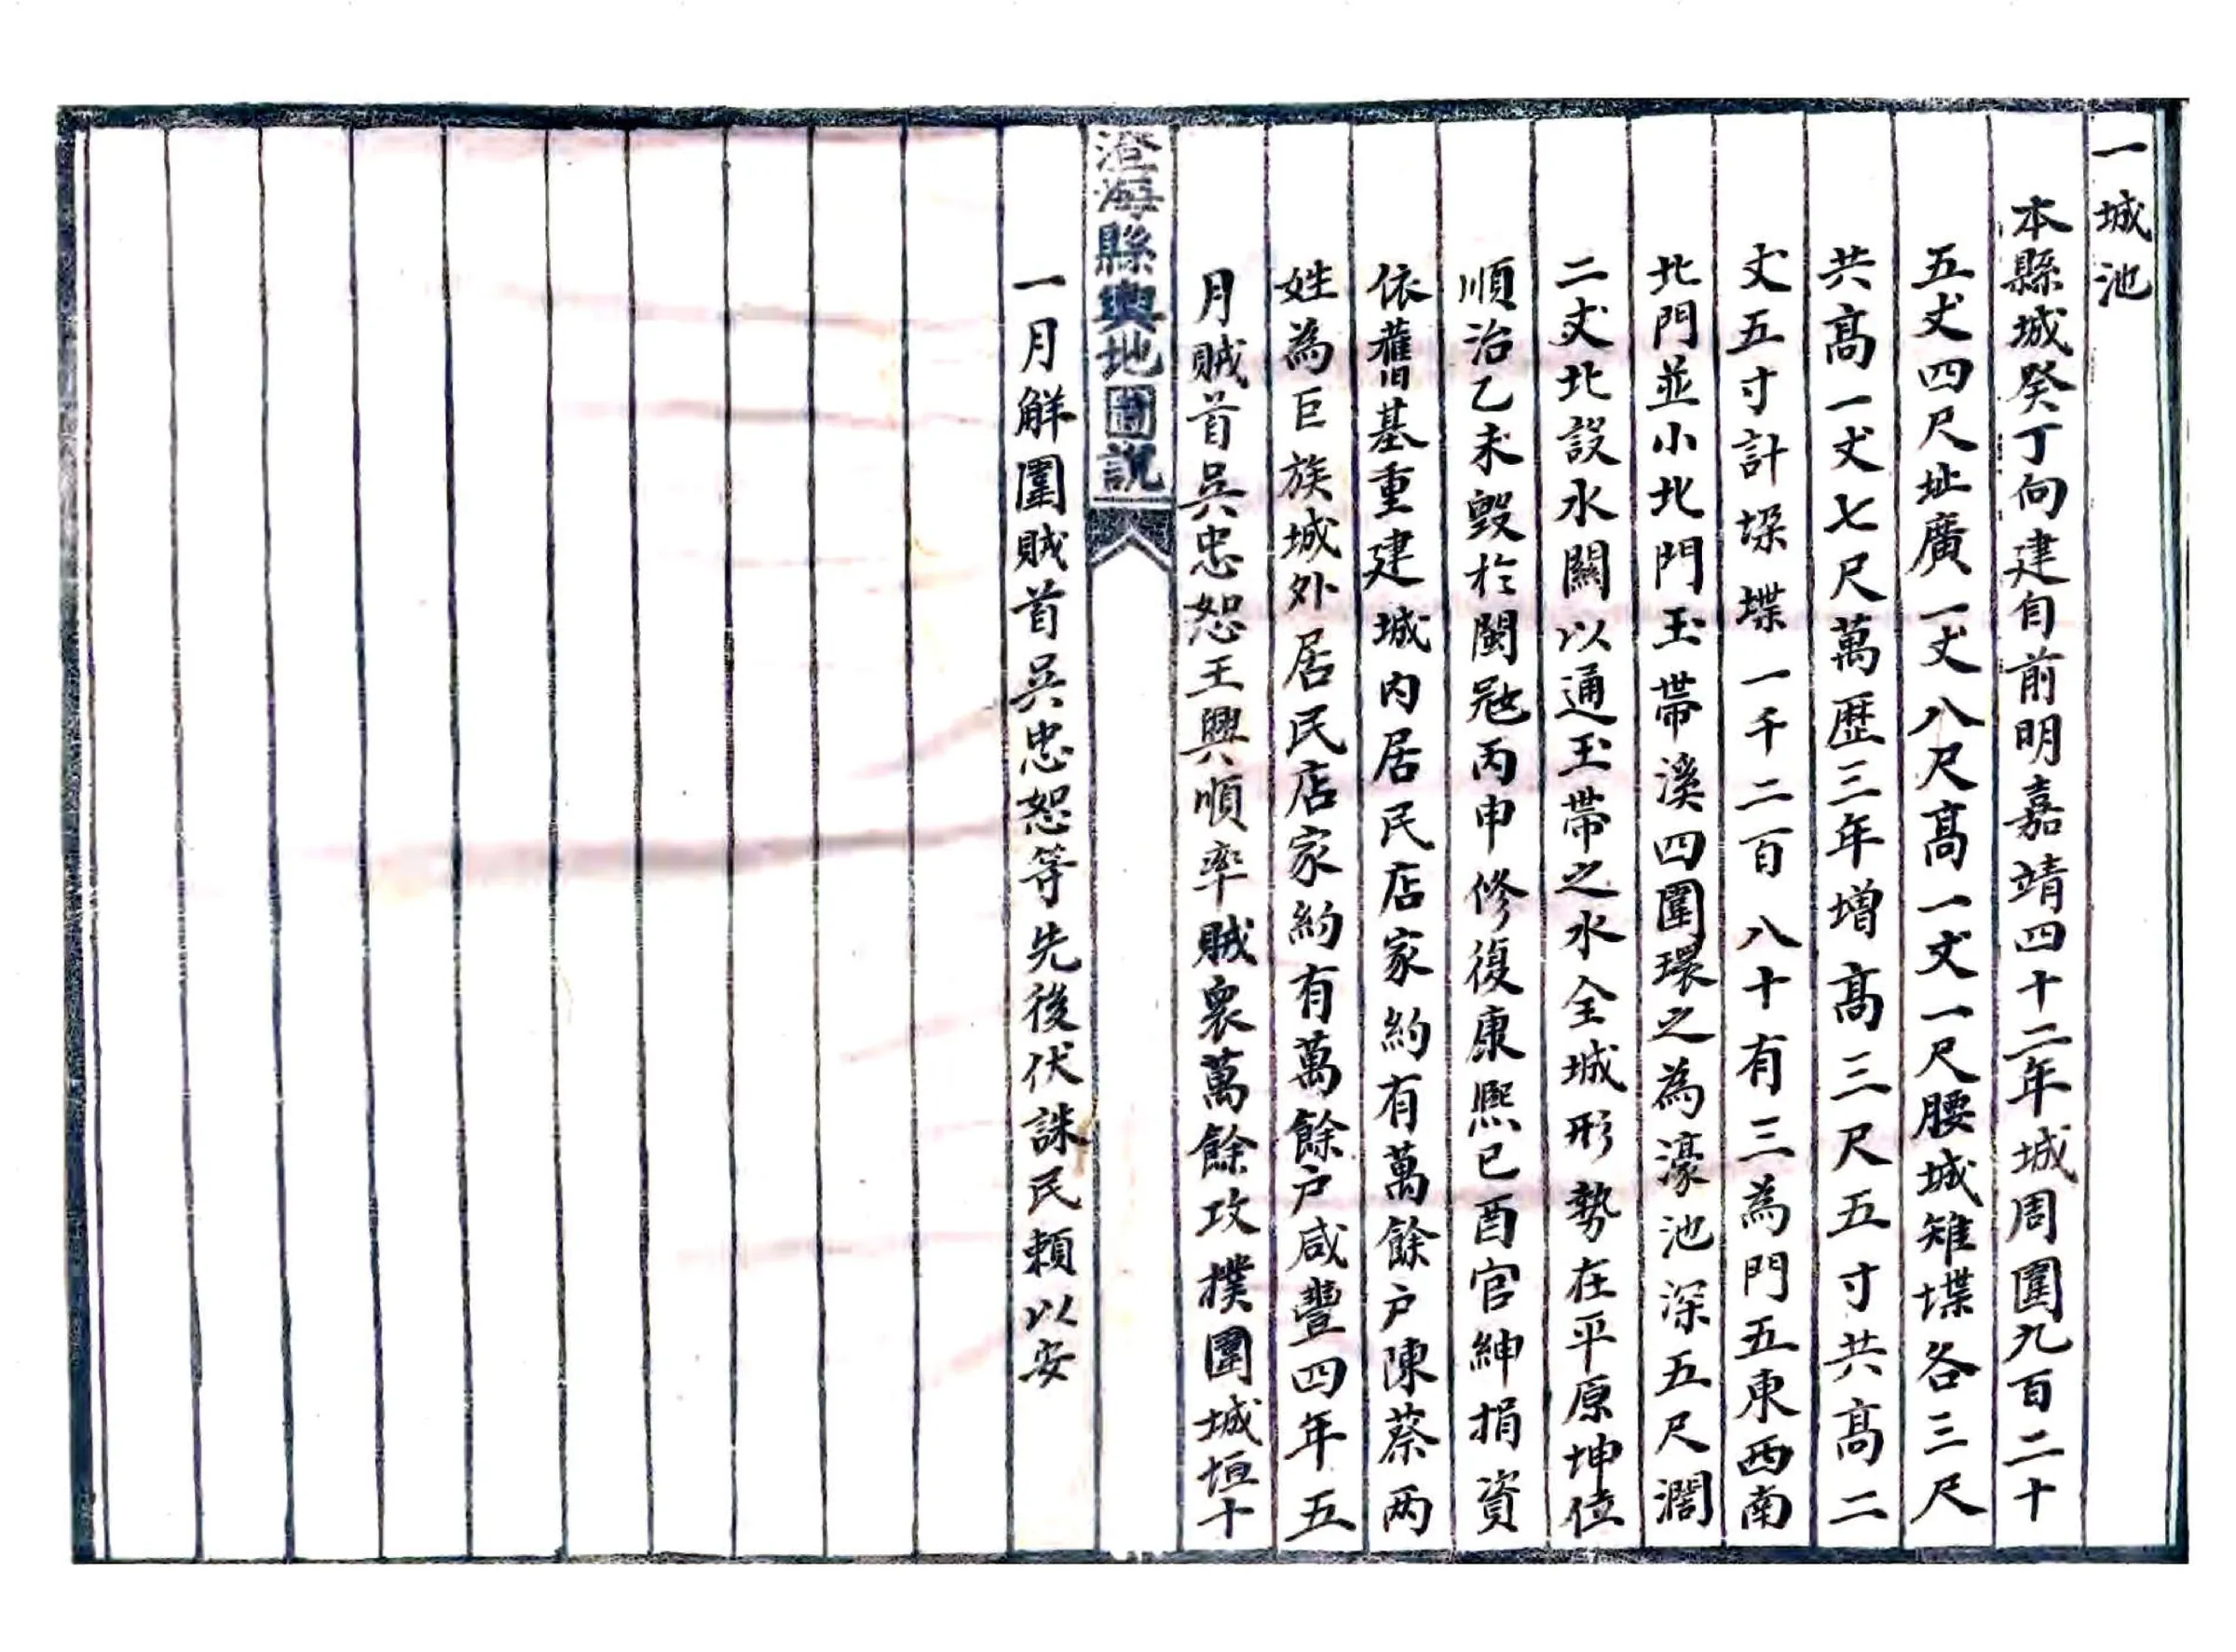 一城池
本縣城癸丁向建自前明嘉靖四十二年城周圍九百二十
五丈四尺址廣一丈八尺髙一丈一尺腰城雉堞各三尺
共髙一丈七尺萬歷三年增髙三尺五寸共髙二
丈五寸計垜堞一千二百八十有三為門五東西南
北門並小北門玉帶溪四圍環之為濠池深五尺濶
二丈北設水關以通玉帶之水全城形勢在平原坤位
順治乙未毀於閩冦丙申修復康熙已酉官紳捐資
依舊基重建城内居民店家約有萬餘户陳蔡两
姓為巨族城外居民店家約有萬餘户咸豐四年五
月賊首吳忠恕王興順率賊衆萬餘攻撲圍城垣十
澄海縣輿地圖説
一月解圍賊首吳忠恕等先後伏誅民頼以安